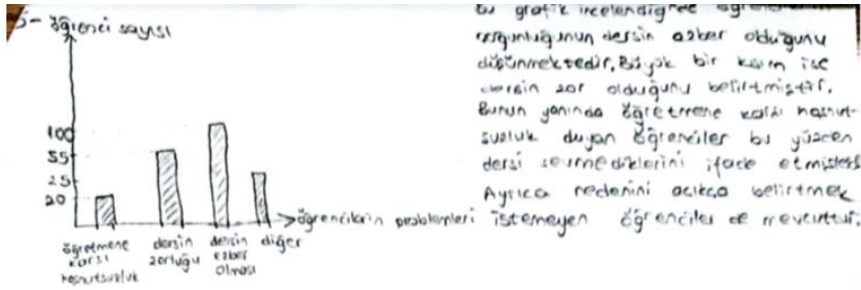 5- öğrenci sayısı
100
55
25
20
öğretmene karşı hoşnutsuzluk
dersin zorluğu
dersin ezber olması
diğer
öğrencilerin problemleri
Bu grafik incelendiğinde
dersin ezber olduğunu
düşünmektedir. Büyük bir kısım ise
dersin zor olduğunu belirtmiştir.
Bunun yanında öğretmene karşı hoşnut-
suzluk duyan öğrenciler bu yüzden
dersi sevmediklerini ifade etmişlerdir.
Ayrıca nedenini açıkça belirtmek
istemeyen öğrenciler de mevcuttur.